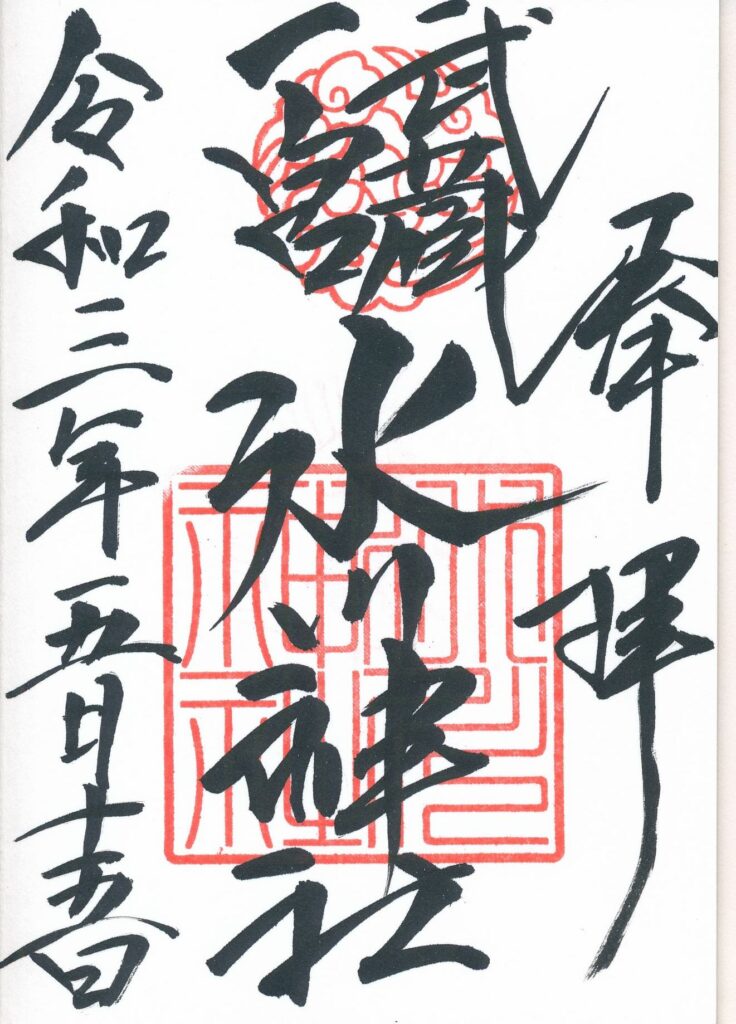 奉拝
武蔵
一宮
氷川神社
令和三年五月十五日